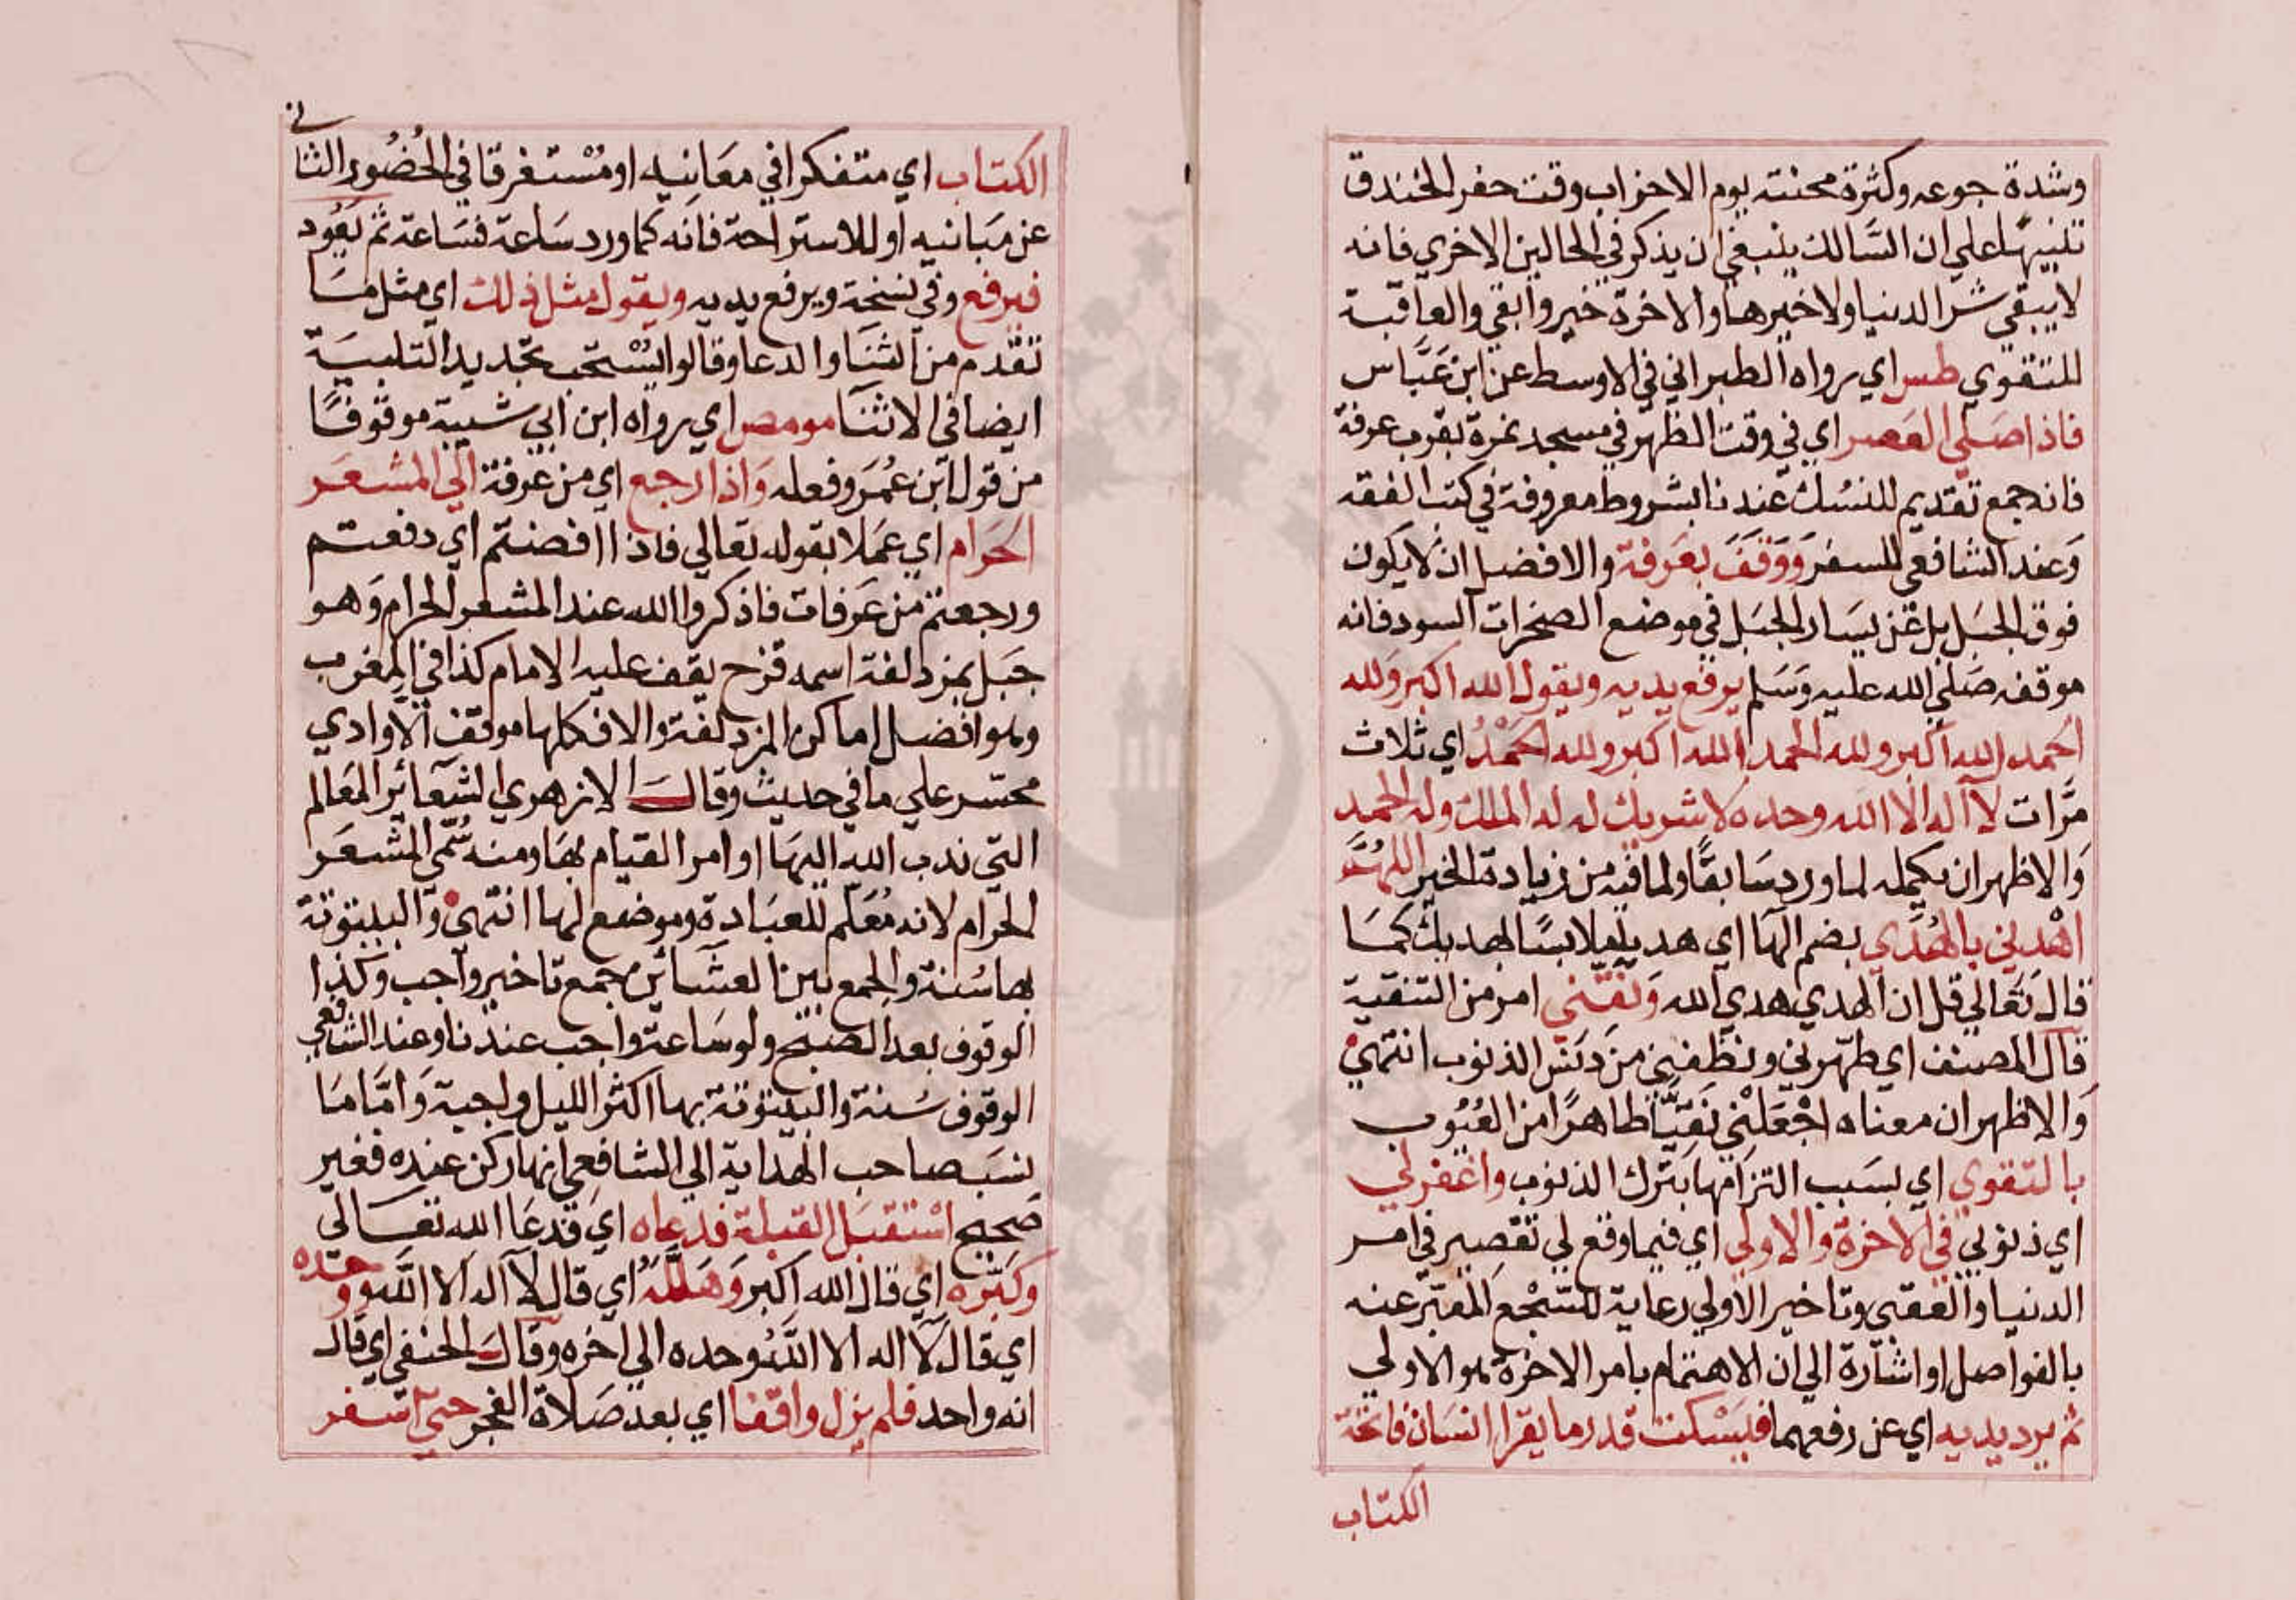 وشدة جوعه وكثرة محنته يوم الاحزاب وقت حفر الخندق
تنبيها على ان السالك ينبغي ان يذكر في الحالين الاخري فانه
لا يبقي شر الدنيا ولا خيرها والاخرة خير وابقي والعاقبة
للتقوي طس اي رواه الطبراني في الاوسط عن ابن عَبَّاس
فاذا صلى العصر اي في وقت الظهر في مسجد نمرة بقرب عرفة
فانه جمع تقديم للنسُك عندنا بشروط معروفة في كتب الفقه
وَعند الشافعي للسفر وَوَقَفَ بعَرفة والافضل ان لا يكون
فوق الجبَل بل عَن يسَار الجبَل في موضع الصخرات السود فانه
موقفه صَلي الله عليه وَسَلم يرفع يديه ويقول الله اكبر ولله
الحمد الله اكبر ولله الحمد الله اكبر ولله الحَمْدُ اي ثلاث
مرَّات لا اله الا الله وحده لا شريك له له الملك وله الحمد
وَالاظهر ان يكمله لما ورد سَابقًا ولما فيه من زيادة الخير اللهُمَّ
اهْدني بالهُدَي بضم الهَا اي هد ملابسًا لهديك كمَا
قال تعَالي قل ان الهدي هدي الله وَنقّني امر من التنقية
قال المصنف اي طهّرني ونظفني من دَنَس الذنوب انتهي
وَالاظهر ان معناه اجْعَلْني نَقيًّا طاهرًا من العُيُوب
بالتقوي اي بسَبب التزامها بترك الذنوب واغفر لي
اي ذنوبي في الاخرة والاولي اي فيما وقع لي تقصير في امر
الدنيا والعقبي وتاخير الاولي رعاية للسّجْع المعَبّر عنه
بالفواصل او اشارة الي ان الاهتمام بامر الاخرة هو الاولي
ثم يرد يديه اي عن رفعهما فيَسْكت قدر ما يقرا انسَان فاتحة
الكتاب
الكتاب اي متفكرا في معَانيه او مُسْتغرقا في الحُضُور الثا
ني
عن مَبانيه او للاستراحة فانه كما ورد سَاعة فسَاعة ثم يَعُود
فيرفع وفي نسخة ويرفع يديه ويقول مثل ذلك اي مثل مَا
تقدم من الثنَا والدعا وقالوا يُسْتحب تجديد التلبيَة
ايضا في الاثنَا مو مص اي رواه ابن ابي شيبة موقوفًا
من قول ابن عُمَر وفعله وَاذا رجع اي من عرفة الي المشعَر
الحَرام اي عمَلا بقوله تعَالي فاذا افضتم اي دفعتم
ورجعتم من عَرفات فاذكروا الله عند المشعر الحرام وَهو
جَبل بمزدلفة اسمه قزح يقف عليه الامام كذا في المغرب
وهو افضل اماكن المزدلفة والا فكلها موقف الا وادي
محسّر علي ما في حديث وقال الازهري الشعَائر المعَالم
التي ندب الله اليهَا او امر القيام بهَا ومنه سُمّي المشعَر
الحرام لانه مُعَلم للعبَادة وموضع لها انتهي وَالبيتوتة
بها سُنة والجمع بين العشَائين جمع تاخير واجب وكذا
الوقوف بعد الصبْح ولو سَاعة واجب عندنا وعند الشافعي
الوقوف سُنة والبيتوتة بها اكثر الليل واجبة وَامَّا مَا
نسَب صاحب الهداية الي الشافعي انها ركن عنده فغير
صَحيح اسْتقبَل القبلة فدعاه اي فدعَا الله تعَالى
وكبّره اي قال الله اكبر وَهَلَّلَهُ اي قال لا اله الا الله ووحّده
اي قال لا اله الا الله وحده الي اخره وقال الحنفي اي قال
انه واحد فلم يزل واقفا اي بعد صَلاة الفجر حتي اسفر